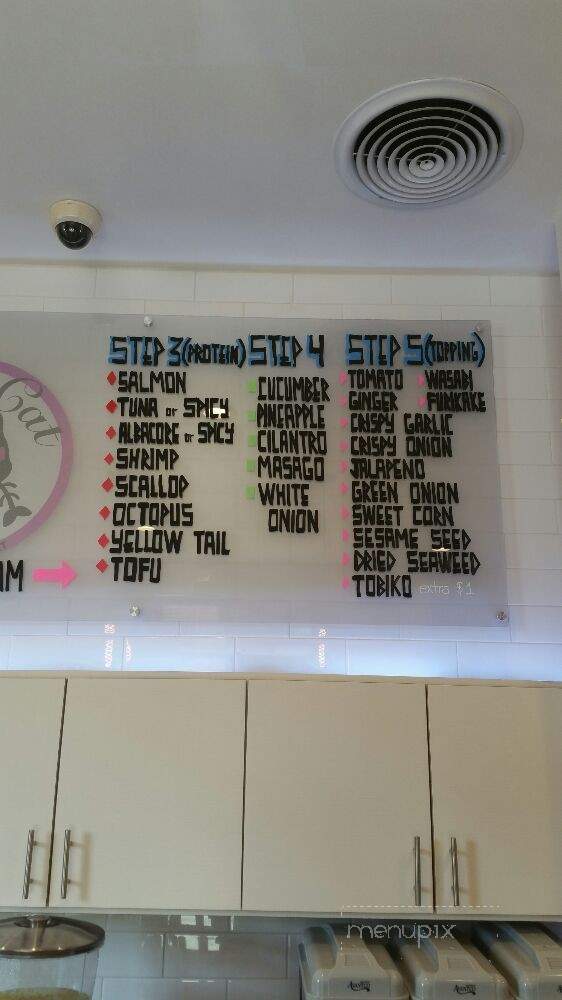 Cat
AM
STEP 3 (PROTEIN)
SALMON
TUNA or SPICY
ALBACORE or SPICY
SHRIMP
SCALLOP
OCTOPUS
YELLOW TAIL
TOFU
STEP 4
CUCUMBER
PINEAPPLE
CILANTRO
MASAGO
WHITE
ONION
STEP 5 (TOPPING)
TOMATO
GINGER
CRISPY GARLIC
CRISPY ONION
JALAPENO
GREEN ONION
SWEET CORN
SESAME SEED
DRIED SEAWEED
TOBIKO extra $1
WASABI
FURIKAKE
menupix